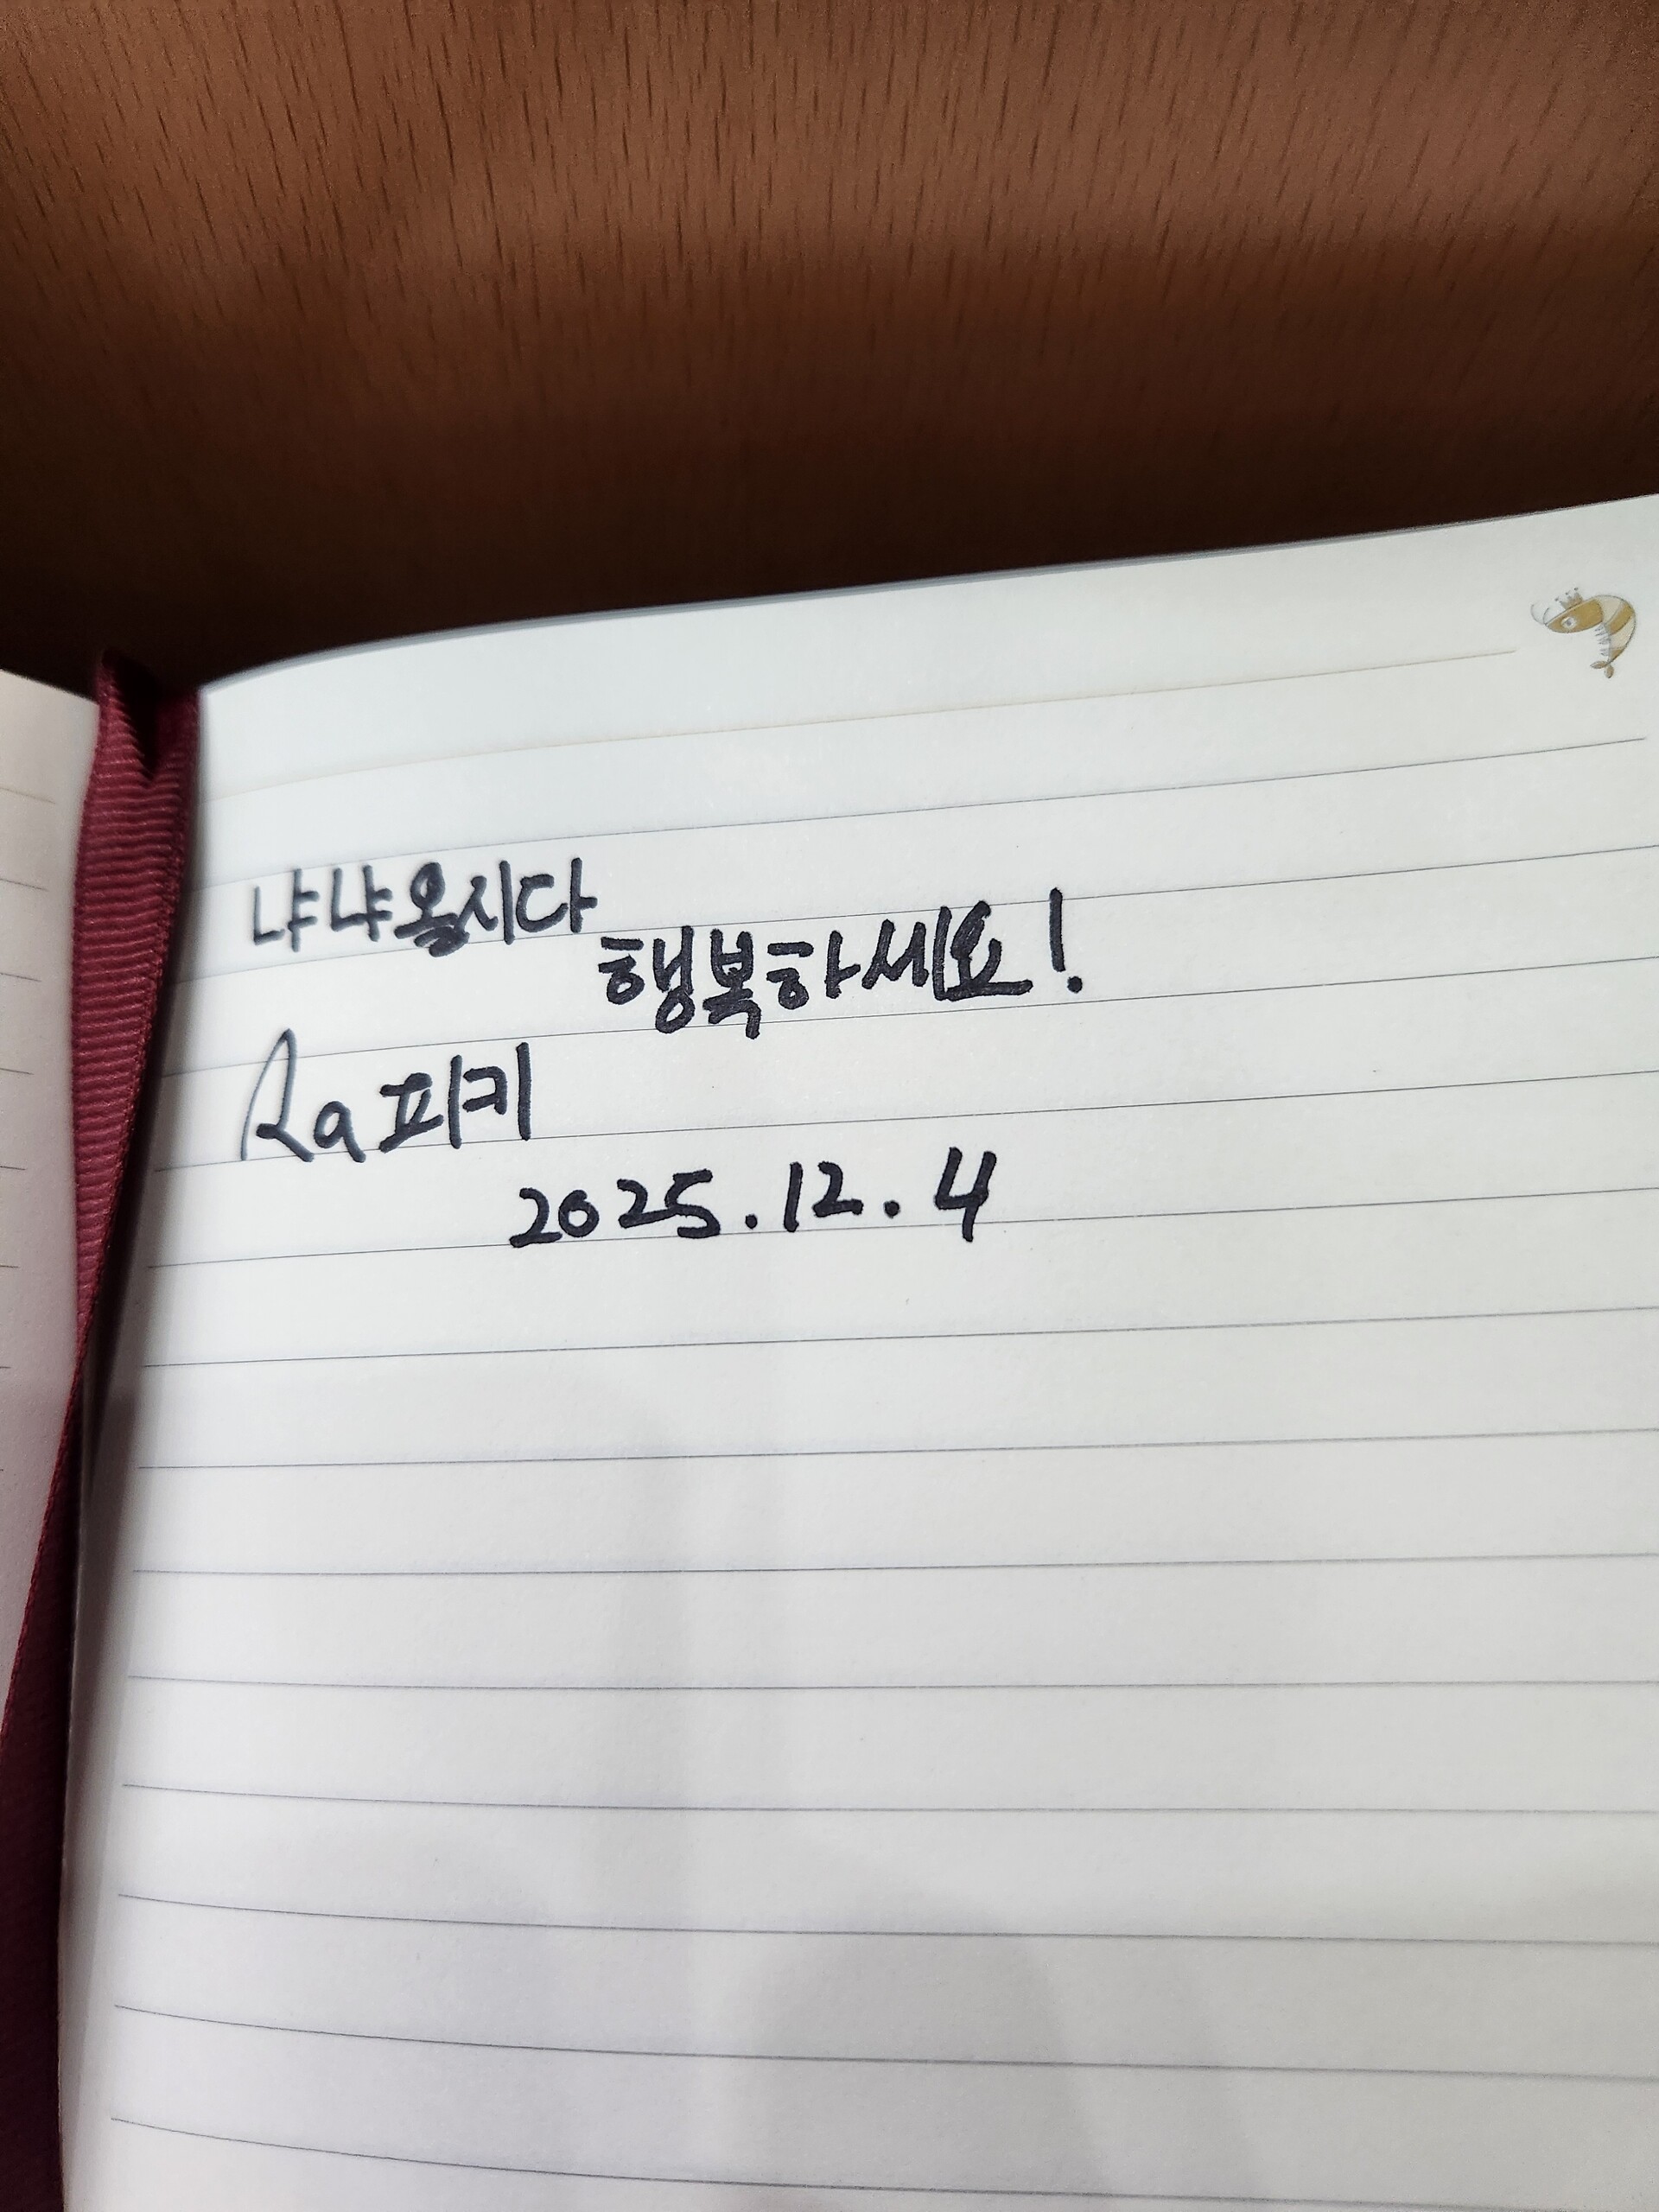 냐냐올시다
행복하세요!
Ra피키
2025.12.4